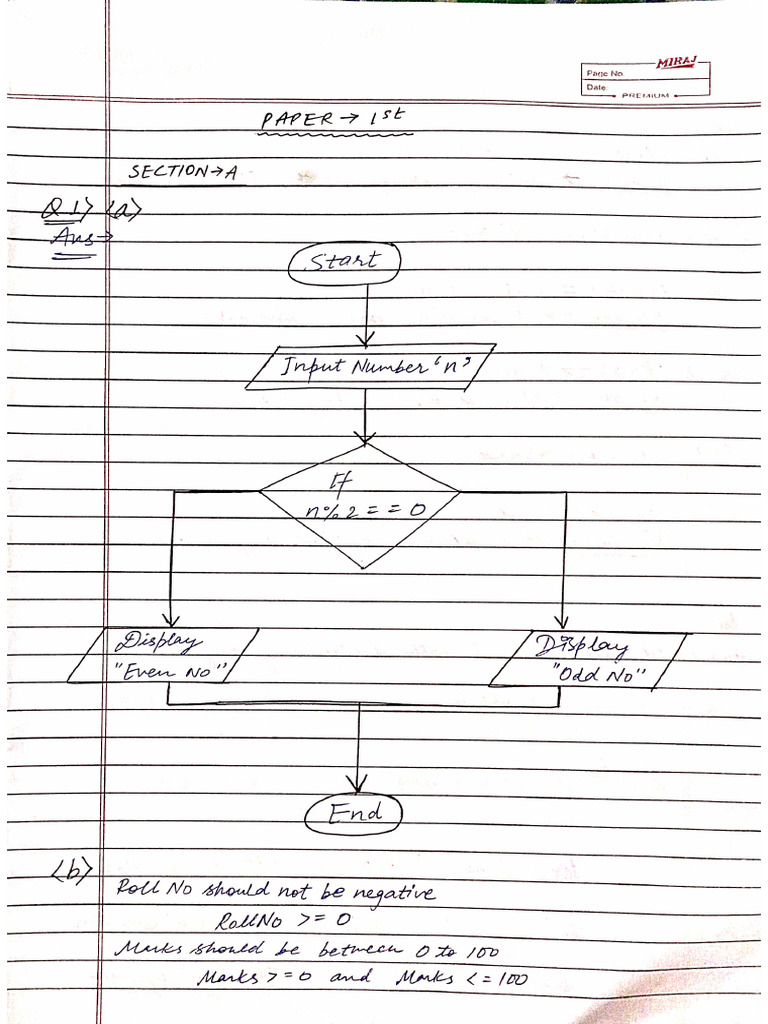 MIRAJ
Page No.
Date
PREMIUM
PAPER → 1st
SECTION → A
Q 1> <a>
Ans →
Start
Input Number 'n'
If
n % 2 = = 0
Display
"Even No"
Display
"Odd No"
End
<b>
Roll No should not be negative
RollNo >= 0
Marks should be between 0 to 100
Marks >= 0 and Marks <= 100